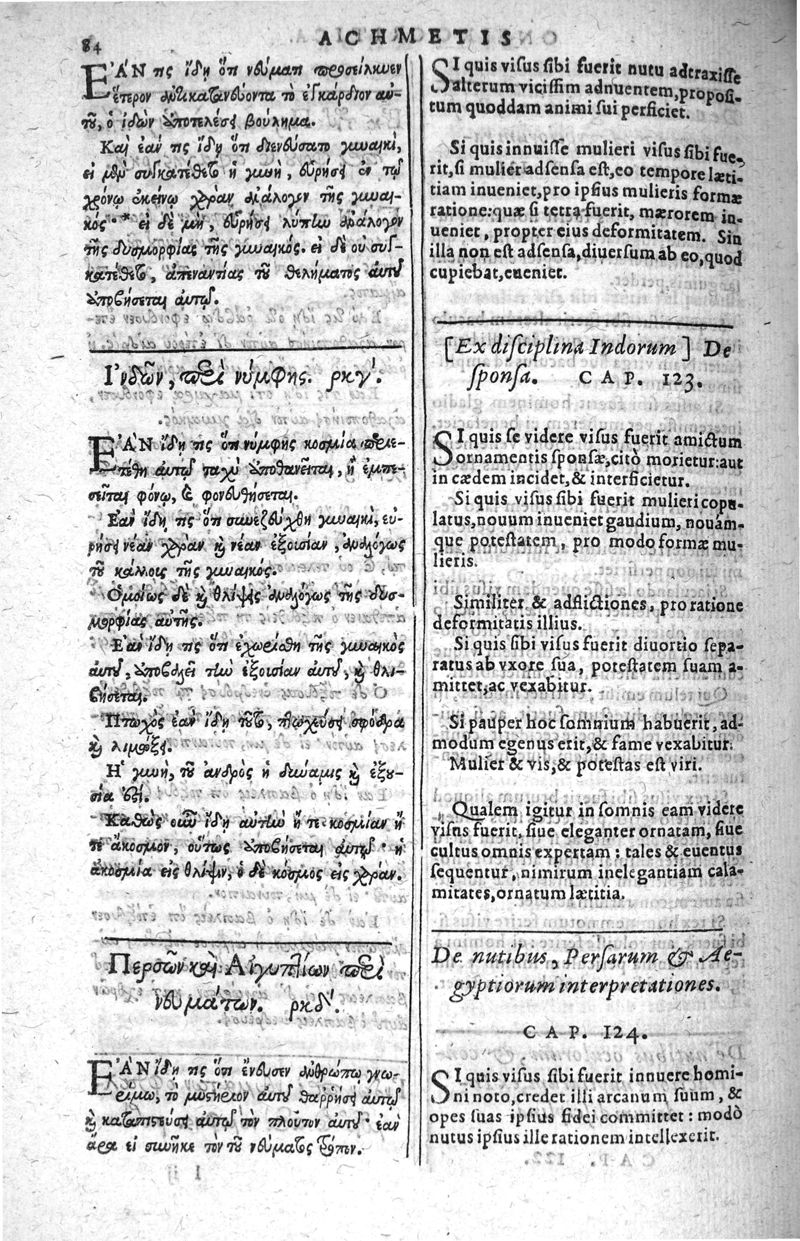 84
ACHMETIS
ἘΑΝ τὶς ἴδῃ ὅτι νεύματι προσείλκυσεν
ἕτερον ἀντικατανεύοντα τὸ ἐγκάρδιον αὐ-
τοῦ, ὁ ἰδὼν ἀποτελέσει βούλημα.
Καὶ ἐάν τις ἴδῃ ὅτι διενεύσατο γυναικὶ,
εἰ μὲν συγκατέθετο ἡ γυνὴ, εὑρήσει ἐν τῷ
χρόνῳ ἐκείνῳ χαρὰν ἀνάλογον τῆς γυναι-
κός· * εἰ δὲ μὴ, εὑρήσει λύπην ἀνάλογον
τῆς δυσμορφίας τῆς γυναικός. εἰ δὲ οὐ συγ-
κατέθετο, ἀπεναντίας τοῦ θελήματος αὐτοῦ
ἀποβήσεται αὐτῷ.
Ἰνδῶν, περὶ νύμφης. ρκγʹ.
ἘΑΝ ἴδῃ τὶς ὅτι νύμφης κοσμία περιε-
τέθη αὐτῷ ταχὺ ἀποθανεῖται, ἢ ἐμπε-
σεῖται φόνῳ, καὶ φονευθήσεται.
Ἐὰν ἴδῃ τὶς ὅτι συνεζεύχθη γυναικὶ, εὑ-
ρήσει νέαν χαρὰν καὶ νέαν ἐξουσίαν, ἀναλόγως
τοῦ κάλλους τῆς γυναικός.
Ὁμοίως δὲ καὶ θλίψεις ἀναλόγως τῆς δυσ-
μορφίας αὐτῆς.
Ἐὰν ἴδῃ τὶς ὅτι ἐχωρίσθη τῆς γυναικὸς
αὐτοῦ, ἀποβαλεῖ τὴν ἐξουσίαν αὐτοῦ, καὶ θλι-
βήσεται.
Πτωχὸς ἐὰν ἴδῃ τοῦτο, πτωχεύσει σφόδρα
καὶ λιμώξει.
Ἡ γυνὴ, τοῦ ἀνδρὸς ἡ δύναμις καὶ ἐξου-
σία ἐστί.
Καθὼς οὖν ἴδῃ αὐτὴν ἤ τε κοσμίαν ἤ
τε ἄκοσμον, οὕτως ἀποβήσεται αὐτῷ· ἡ
ἀκοσμία εἰς θλίψιν, ὁ δὲ κόσμος εἰς χαράν.
Περσῶν καὶ Αἰγυπτίων περὶ
νευμάτων. ρκδʹ.
ἘΑΝ ἴδῃ τὶς ὅτι ἔνευσεν ἀνθρώπῳ γνω-
ρίμῳ, τὸ μυστήριον αὐτοῦ θαρρήσει αὐτῷ
καὶ καταπιστεύσει αὐτῷ τὸν πλοῦτον αὐτοῦ· ἐὰν
ἄρα εἰ συνῆκε τὸν τοῦ νεύματος τρόπον.
SI quis visus sibi fuerit nutu adtraxisse
alterum vicissim adnuentem, proposi-
tum quoddam animi sui perficiet.
Si quis innuisse mulieri visus sibi fue-
rit, si mulier adsensa est, eo tempore læti-
tiam inueniet, pro ipsius mulieris formæ
ratione: quæ si tetra fuerit, mærorem in-
ueniet, propter eius deformitatem. Sin
illa non est adsensa, diuersum ab eo, quod
cupiebat, eueniet.
[Ex disciplina Indorum] De
sponsa. CAP. 123.
SI quis se videre visus fuerit amictum
ornamentis sponsæ, citò morietur: aut
in cædem incidet, & interficietur.
Si quis visus sibi fuerit mulieri copu-
latus, nouum inueniet gaudium, nouám-
que potestatem, pro modo formæ mu-
lieris.
Similiter & adflictiones, pro ratione
deformitatis illius.
Si quis sibi visus fuerit diuortio sepa-
ratus ab vxore sua, potestatem suam a-
mittet, ac vexabitur.
Si pauper hoc somnium habuerit, ad-
modum egenus erit, & fame vexabitur.
Mulier & vis, & potestas est viri.
Qualem igitur in somnis eam videre
visus fuerit, siue eleganter ornatam, siue
cultus omnis expertam: tales & euentus
sequentur, nimirum inelegantiam cala-
mitates, ornatum lætitia.
De nutibus, Persarum & Ae-
gyptiorum interpretationes.
CAP. 124.
SI quis visus sibi fuerit innuere homi-
ni noto, credet illi arcanum suum, &
opes suas ipsius fidei committet: modò
nutus ipsius ille rationem intellexerit.